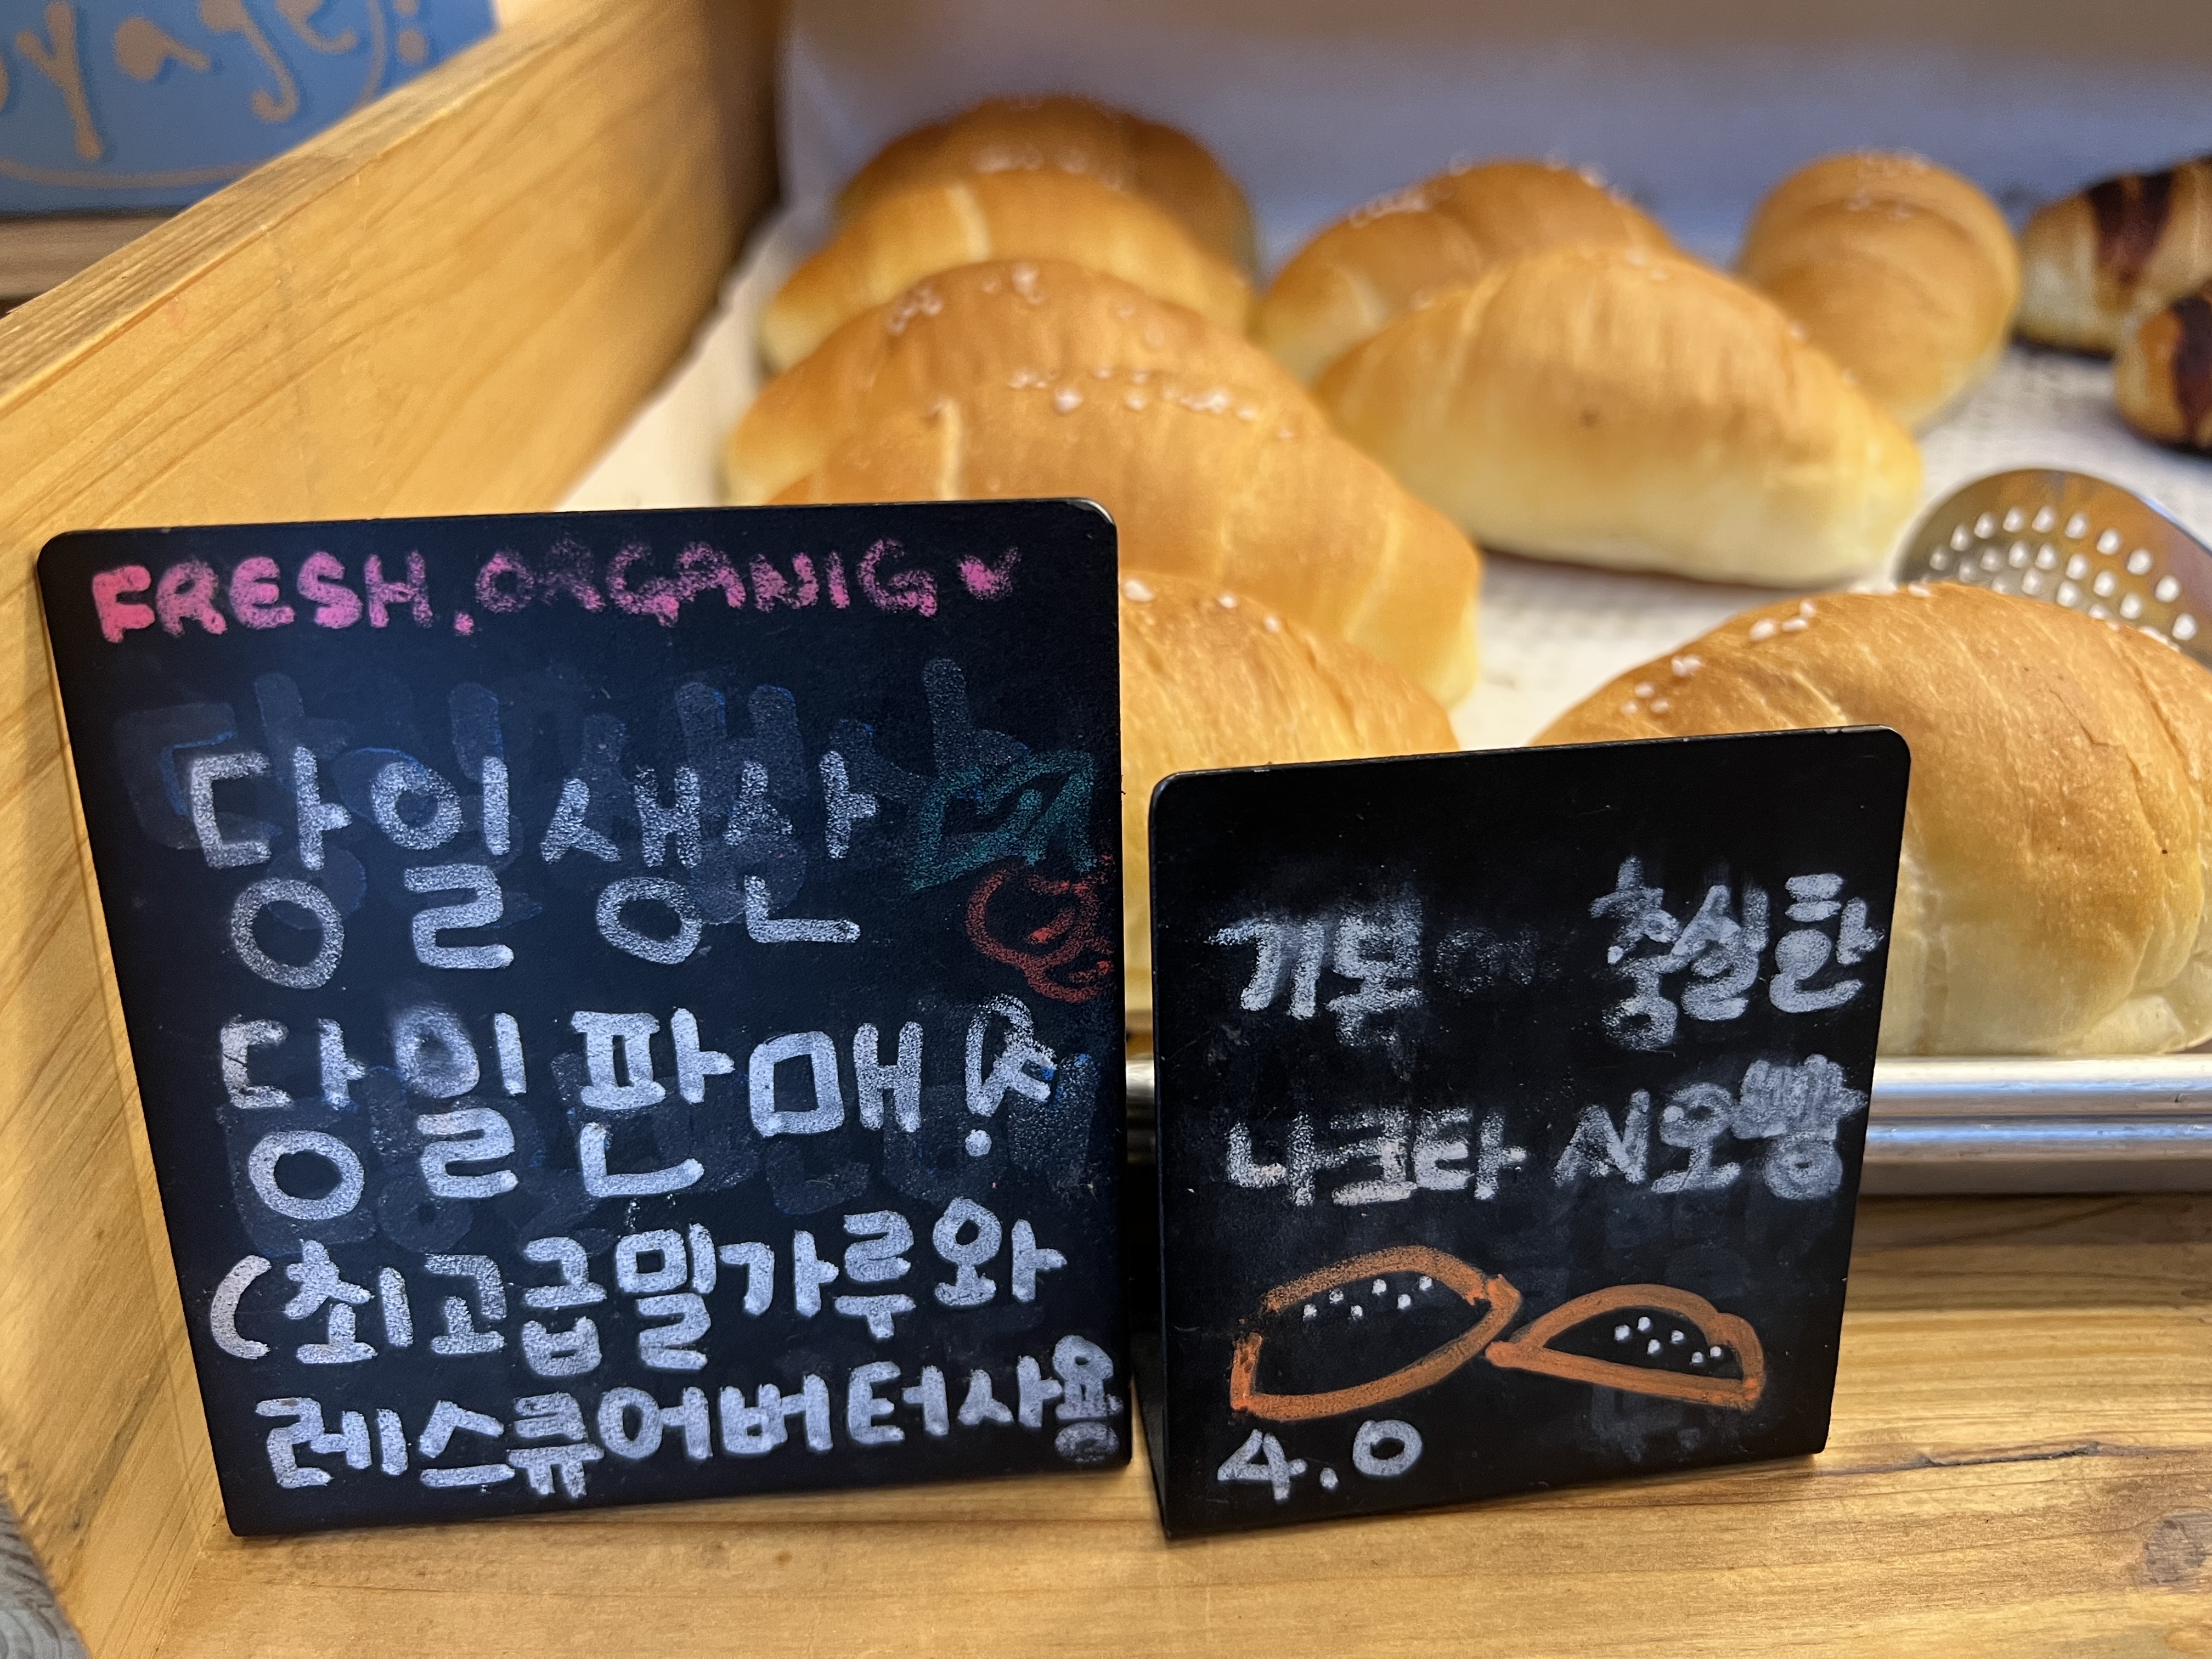 FRESH. ORGANIG
당일생산
당일판매!
(최고급밀가루와
레스큐어버터사용
기본에 충실한
나크타 시오빵
4.0